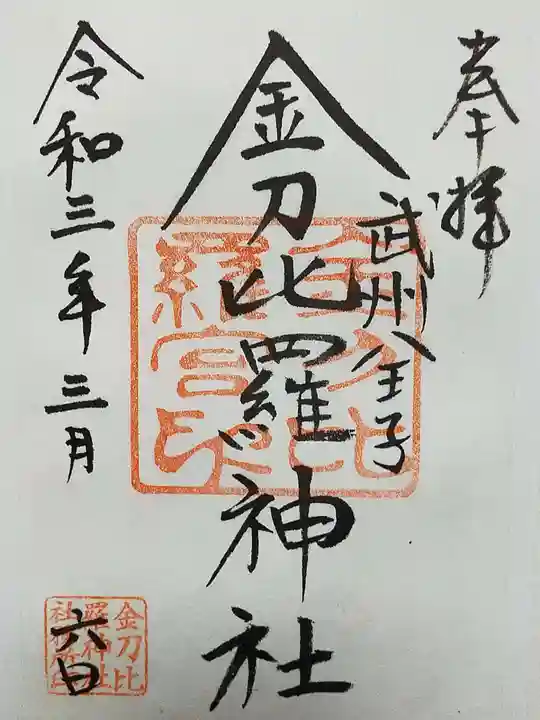 奉拝
武州八王子
金刀比羅神社
金刀比羅宮印
令和三年三月
六日
金刀比
羅神社
社務所印